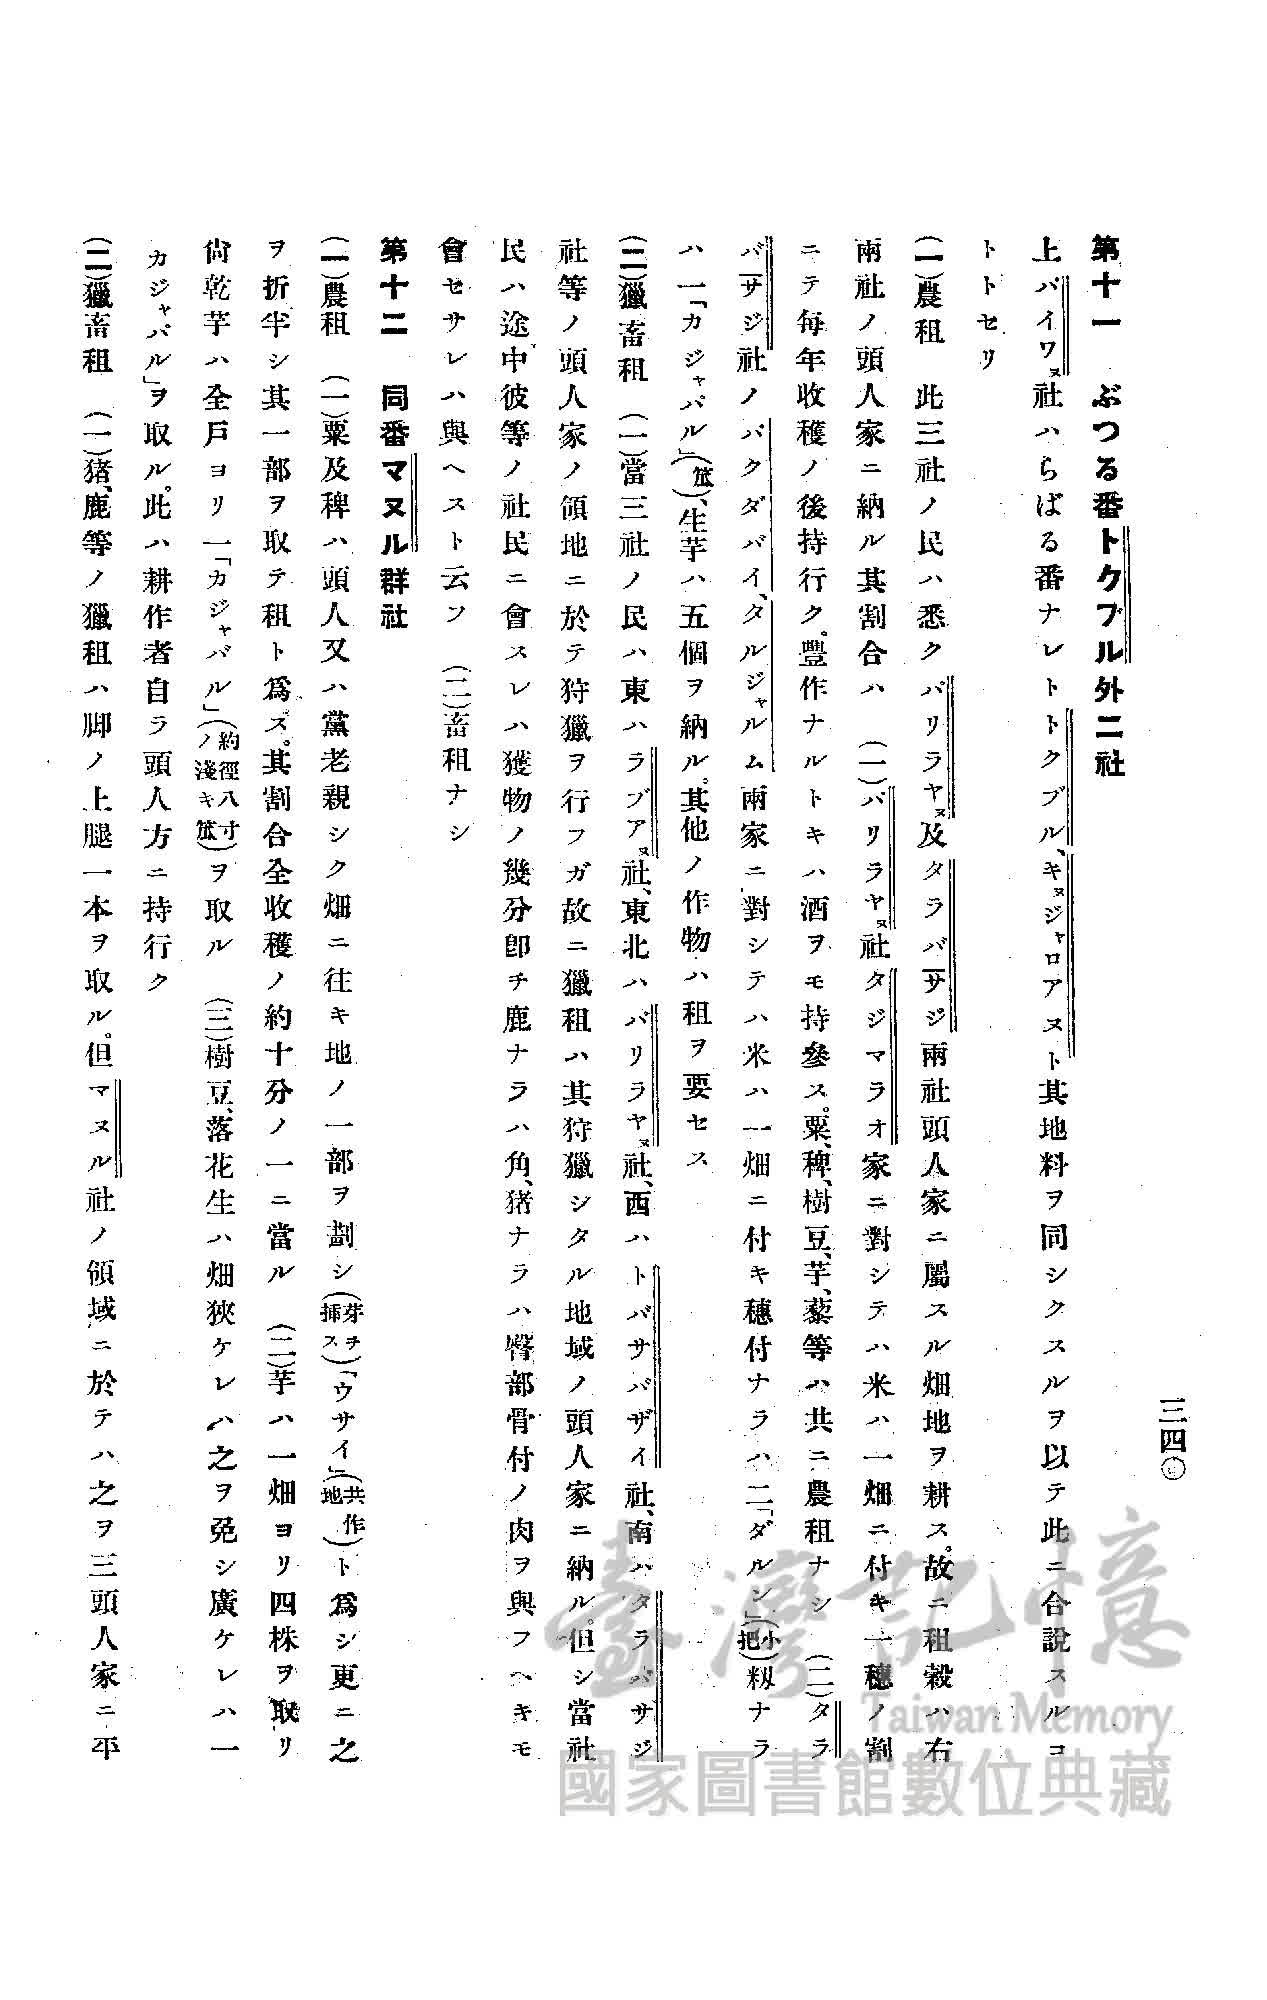 三四〇
第十一　ぶつる番トクブル外二社
上パイワヌ社ハらばる番ナレトトクブル、キヌジャロアヌト其地料ヲ同シクスルヲ以テ此ニ合說スルコ
トトセリ
(一)農租　此三社ノ民ハ悉クパリラヤヌ及タラバサジ兩社頭人家ニ屬スル畑地ヲ耕ス。故ニ租穀ハ右
兩社ノ頭人家ニ納ル其割合ハ　(一)パリラヤヌ社タジマラオ家ニ對シテハ米ハ一畑ニ付キ一穗ノ割
ニテ每年收穫ノ後持行ク。豐作ナルトキハ酒ヲモ持參ス。粟、稗、樹豆、芋、藜等ハ共ニ農租ナシ　(二)タラ
バサジ社ノバクダバイ、タルジャルム兩家ニ對シテハ米ハ一畑ニ付キ穗付ナラハ二「ダルン」(小把)籾ナラ
ハ一「カジャパル」(笊)、生芋ハ五個ヲ納ル。其他ノ作物ハ租ヲ要セス
(二)獵畜租　(一)當三社ノ民ハ東ハラブアヌ社、東北ハパリラヤヌ社、西ハトバサバザイ社、南ハタラバサジ
社等ノ頭人家ノ領地ニ於テ狩獵ヲ行フガ故ニ獵租ハ其狩獵シタル地域ノ頭人家ニ納ル。但シ當社
民ハ途中彼等ノ社民ニ會スレハ獲物ノ幾分卽チ鹿ナラハ角、猪ナラハ臀部骨付ノ肉ヲ與フヘキモ
會セサレハ與ヘスト云フ　(二)畜租ナシ
第十二　同番マヌル群社
(一)農租　(一)粟及稗ハ頭人又ハ黨老親シク畑ニ往キ地ノ一部ヲ劃シ(芽チ挿ス)「ウサイ」(共作地)ト爲シ更ニ之
ヲ折半シ其一部ヲ取テ租ト爲ス。其割合全收穫ノ約十分ノ一ニ當ル　(二)芋ハ一畑ヨリ四株ヲ取リ
尙乾芋ハ全戶ヨリ一「カジャバル」(約徑八寸ノ淺キ笊)ヲ取ル　(三)樹豆、落花生ハ畑狹ケレハ之ヲ免シ廣ケレハ一
カジャパル」ヲ取ル。此ハ耕作者自ラ頭人方ニ持行ク
(二)獵畜租　(一)猪、鹿等ノ獵租ハ脚ノ上腿一本ヲ取ル。但マヌル社ノ領域ニ於テハ之ヲ三頭人家ニ平
臺灣記憶
Taiwan Memory
國家圖書館數位典藏